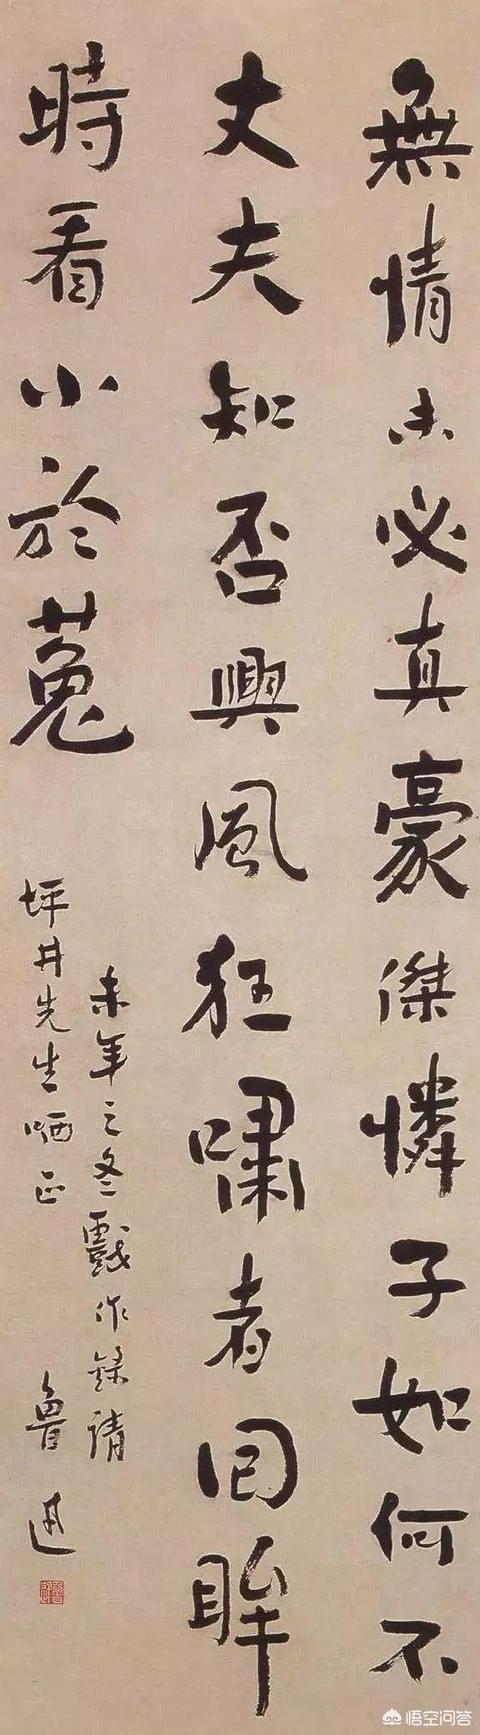 無情未必真豪傑憐子如何不
丈夫知否興風狂嘯者回眸
時看小於菟
未年之冬戲作錄請
坪井先生哂正
魯迅
悟空问答